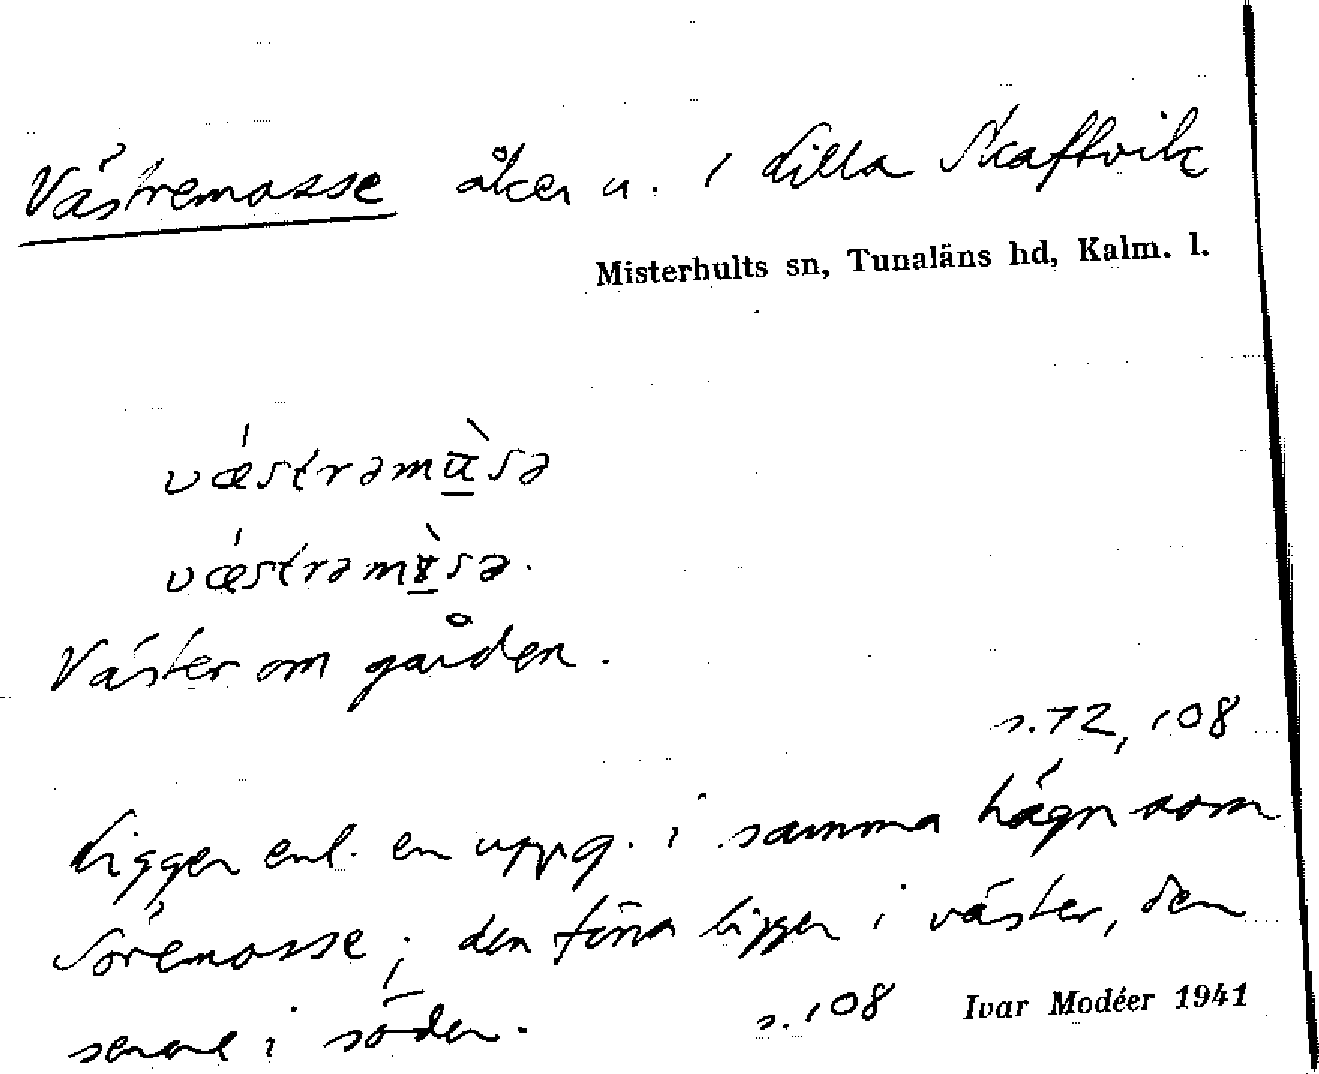 Västremosse åker n. i Lilla Skaftvik
Misterhults sn, Tunaläns hd, Kalm. l.
Väster om gården.
s. 72, 108
Ligger enl. en uppg. i samma hägn som
Söremosse; den förra ligger i väster, den
senare i söder. s. 108 Ivar Modéer 1941